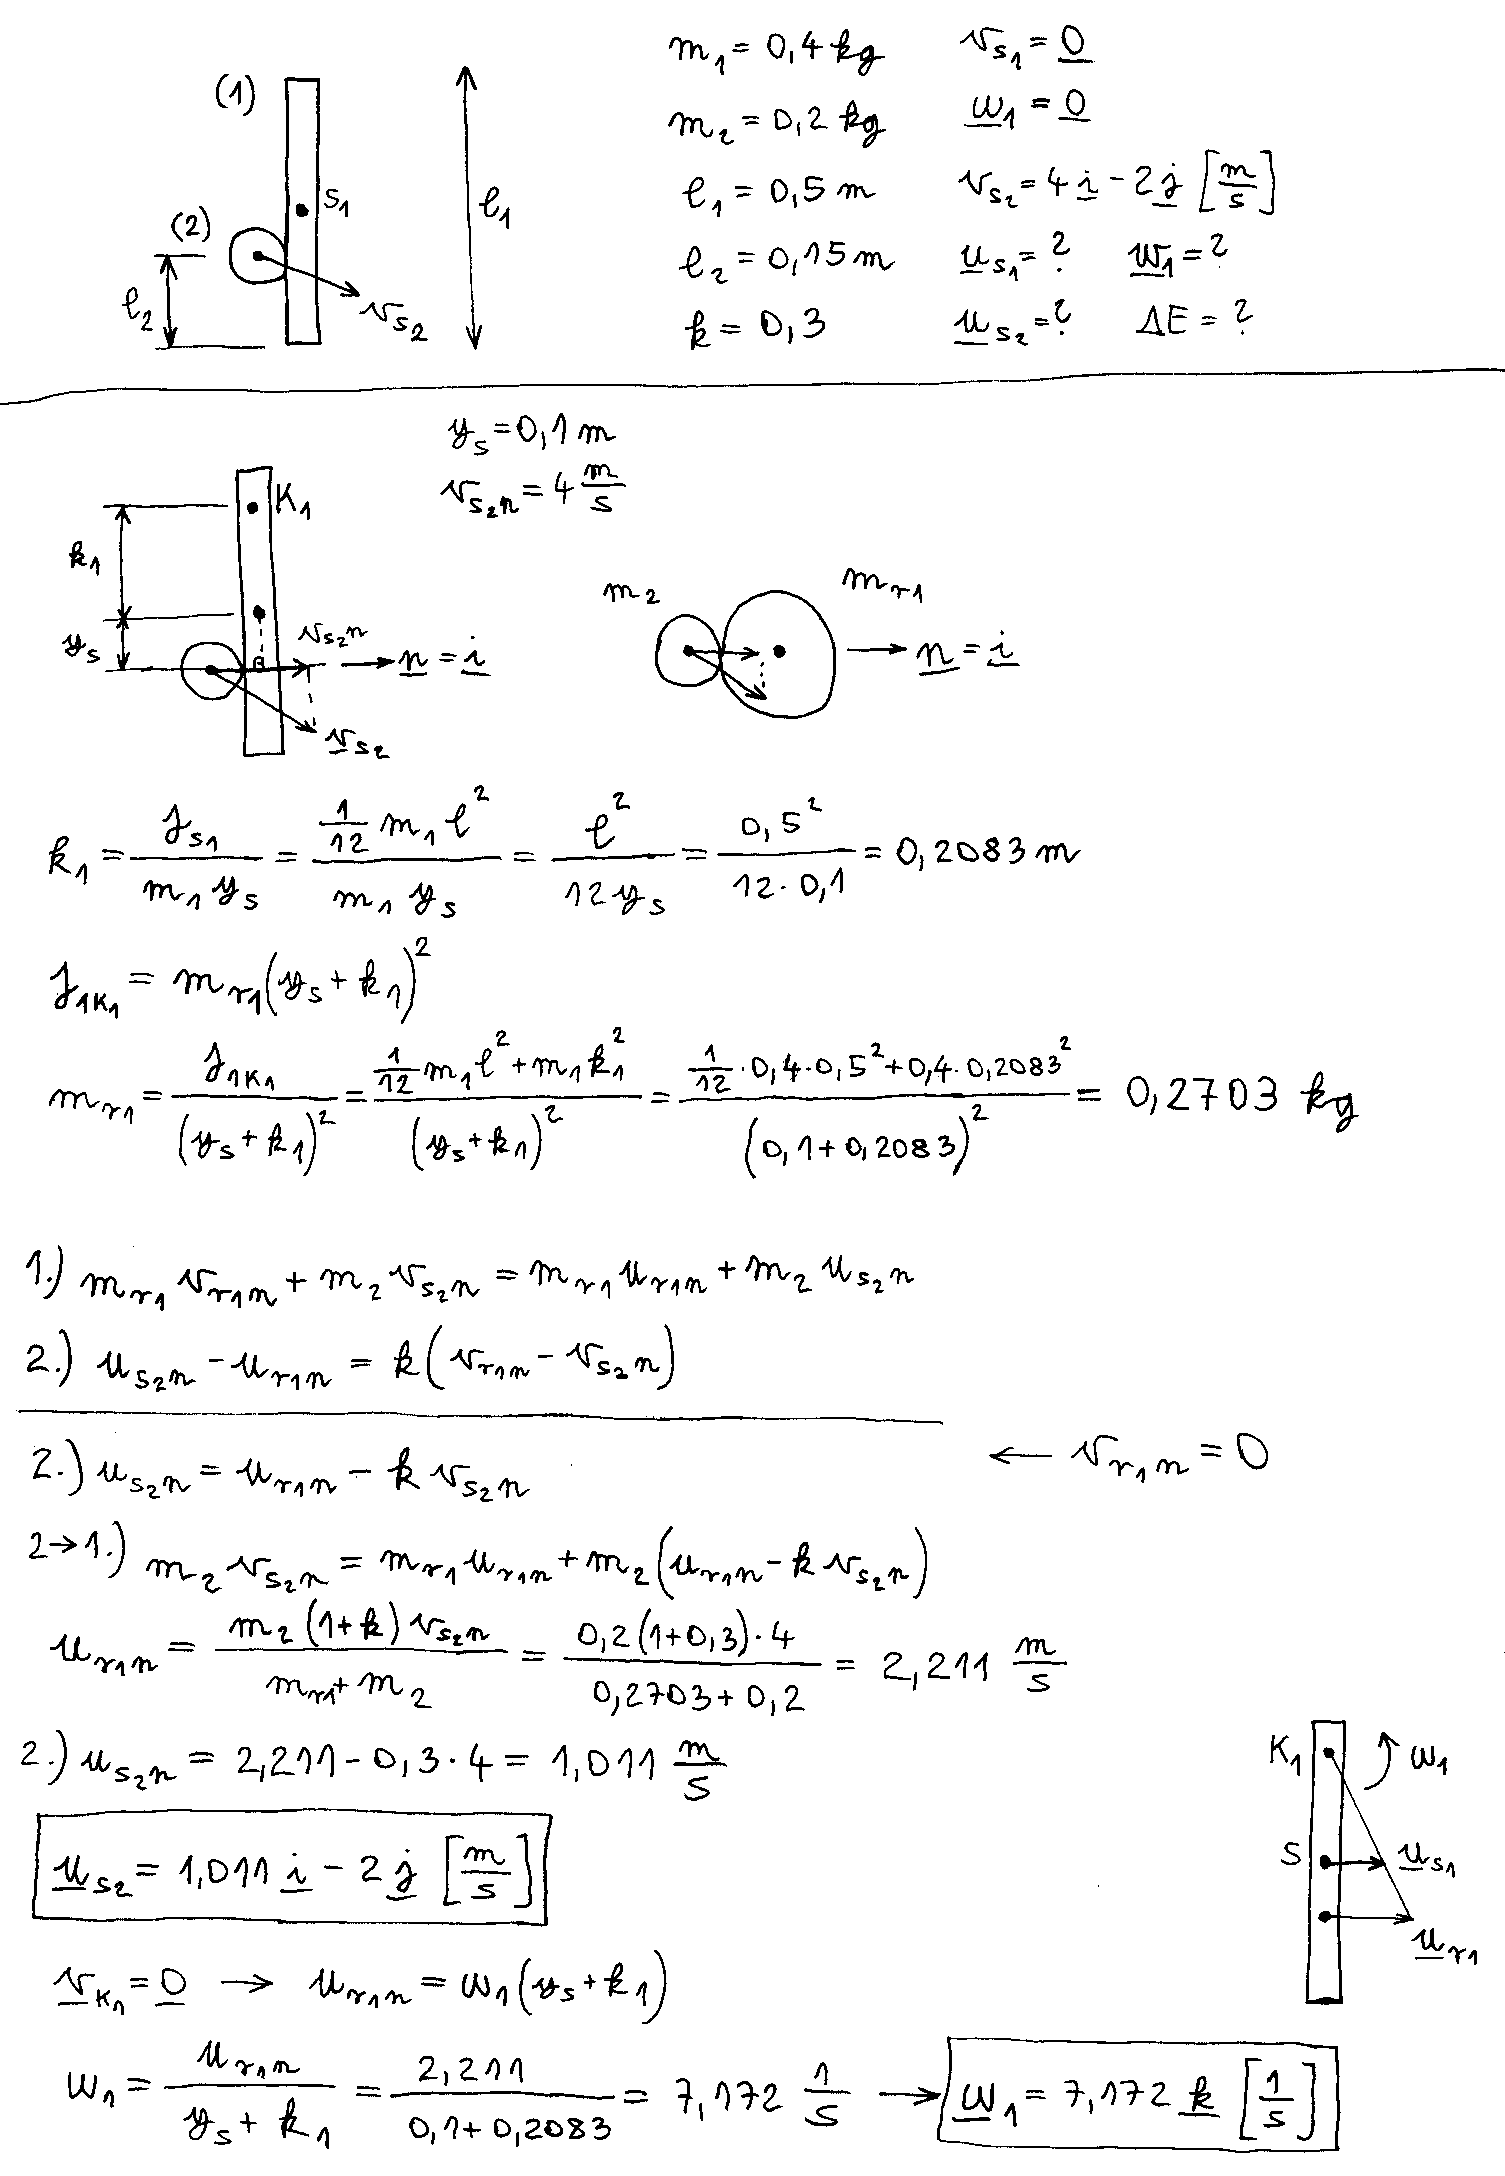 (1)
S₁
(2)
ℓ₂
v_S₂
ℓ₁
m₁ = 0,4 kg v_S₁ = 0
m₂ = 0,2 kg ω₁ = 0
ℓ₁ = 0,5 m v_S₂ = 4 i - 2 j [m/s]
ℓ₂ = 0,15 m u_S₁ = ? ω₁ = ?
k = 0,3 u_S₂ = ? ΔE = ?
y_s = 0,1 m
v_S₂n = 4 m/s
K₁
k₁
y_s
v_S₂n
n = i
v_S₂
m₂
m_r1
n = i
k₁ = J_S1 / (m₁ y_s) = (1/12 m₁ ℓ²) / (m₁ y_s) = ℓ² / (12 y_s) = 0,5² / (12 · 0,1) = 0,2083 m
J_1K₁ = m_r1 (y_s + k₁)²
m_r1 = J_1K₁ / (y_s + k₁)² = (1/12 m₁ ℓ² + m₁ k₁²) / (y_s + k₁)² = (1/12 · 0,4 · 0,5² + 0,4 · 0,2083²) / (0,1 + 0,2083)² = 0,2703 kg
1.) m_r1 v_r1n + m₂ v_S₂n = m_r1 u_r1n + m₂ u_S₂n
2.) u_S₂n - u_r1n = k (v_r1n - v_S₂n)
2.) u_S₂n = u_r1n - k v_S₂n ← v_r1n = 0
2→1.) m₂ v_S₂n = m_r1 u_r1n + m₂ (u_r1n - k v_S₂n)
u_r1n = m₂ (1+k) v_S₂n / (m_r1 + m₂) = 0,2 (1+0,3) · 4 / (0,2703 + 0,2) = 2,211 m/s
2.) u_S₂n = 2,211 - 0,3 · 4 = 1,011 m/s
u_S2 = 1,011 i - 2 j [m/s]
K₁ ω₁
S u_S1
u_r1
v_K₁ = 0 → u_r1n = ω₁ (y_s + k₁)
ω₁ = u_r1n / (y_s + k₁) = 2,211 / (0,1 + 0,2083) = 7,172 1/s → ω₁ = 7,172 k [1/s]